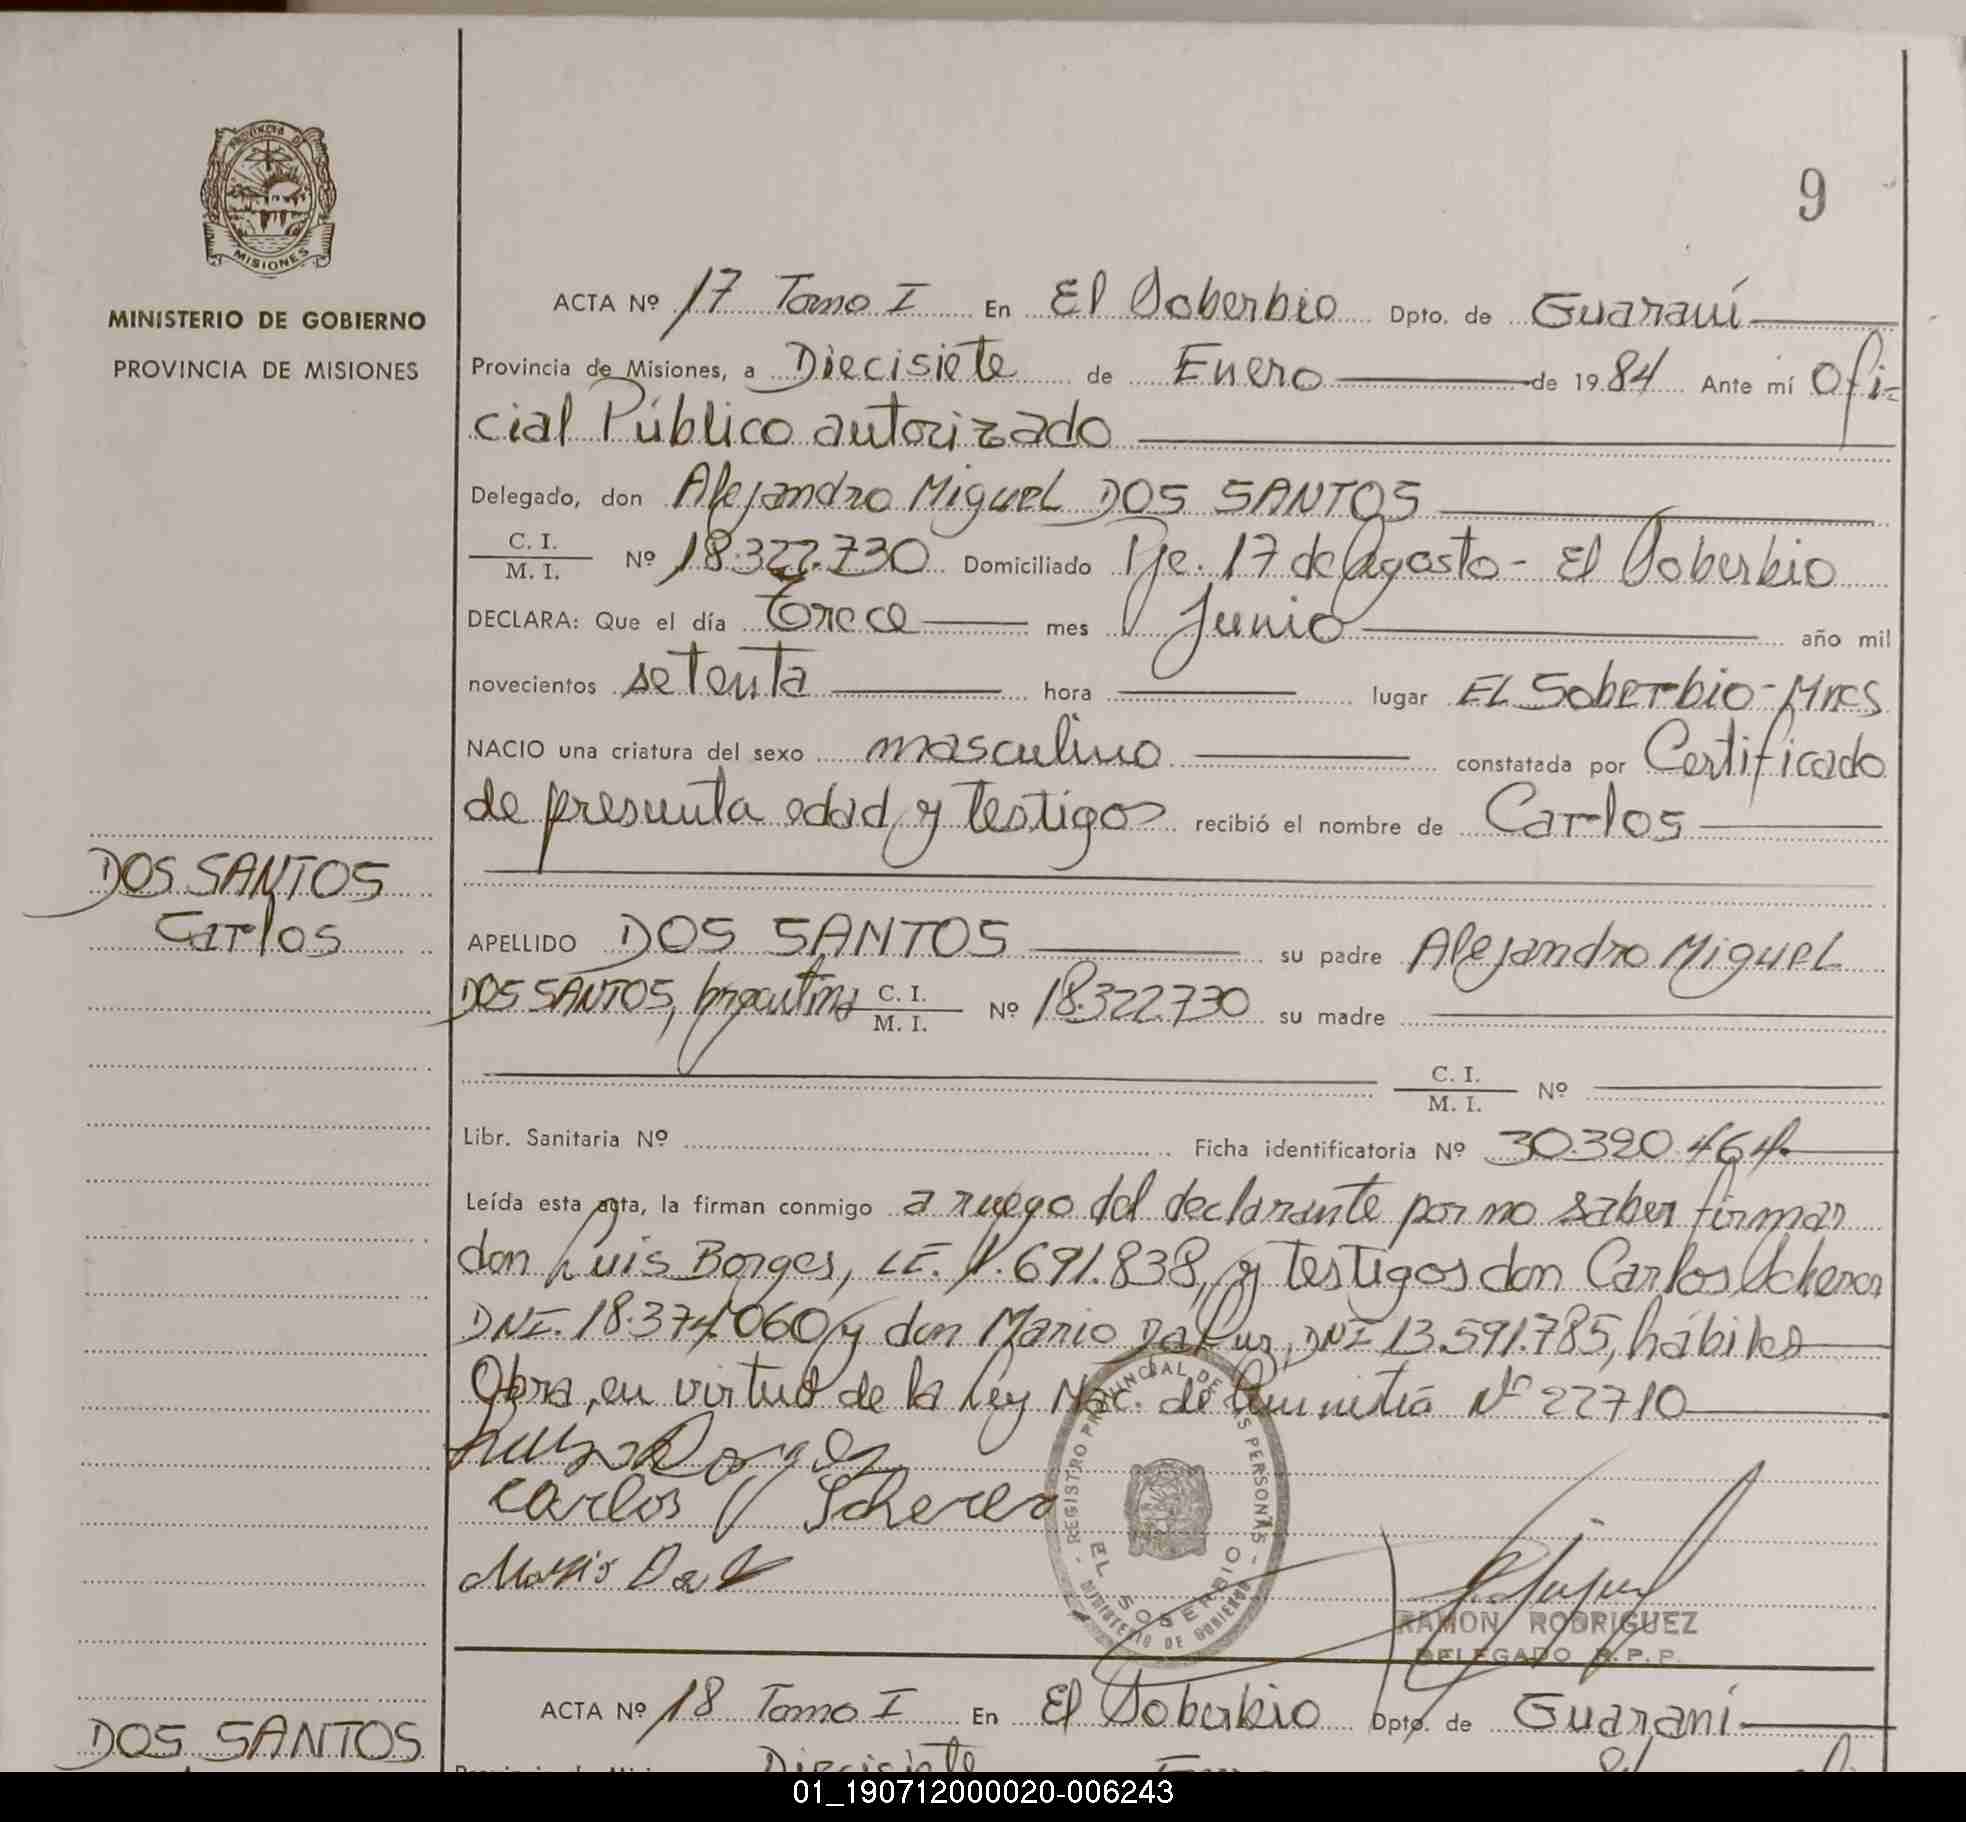 PROVINCIA DE
MISIONES
MINISTERIO DE GOBIERNO
PROVINCIA DE MISIONES
9
ACTA Nº 17 Tomo I En El Soberbio Dpto. de Guaraní
Provincia de Misiones, a Diecisiete de Enero de 1984 Ante mí Ofi-
cial Público autorizado
Delegado, don Alejandro Miguel DOS SANTOS
C. I.
M. I. Nº 18.322.730 Domiciliado Pje. 17 de Agosto - El Soberbio
DECLARA: Que el día trece mes Junio año mil
novecientos setenta hora lugar EL Soberbio - Mnes
NACIO una criatura del sexo masculino constatada por Certificado
de presunta edad y testigos recibió el nombre de Carlos
DOS SANTOS
Carlos
APELLIDO DOS SANTOS su padre Alejandro Miguel
DOS SANTOS, Argentina C. I. M. I. Nº 18.322.730 su madre
C. I.
M. I. Nº
Libr. Sanitaria Nº Ficha identificatoria Nº 30.320.464
Leída esta acta, la firman conmigo a ruego del declarante por no saber firmar
don Luis Borges, LE. 1.691.838, y testigos don Carlos Scherer
DNI. 18.374.060 y don Mario Da Luz, DNI 13.591.785, hábiles
Obra, en virtud de la Ley Nac. de Amnistía Nº 22710
Luis Borges
Carlos Scherer
Mario Da L
REGISTRO PROVINCIAL DE LAS PERSONAS
EL SOBERBIO
MINISTERIO DE GOBIERNO
RAMON RODRIGUEZ
DELEGADO R. P. P.
ACTA Nº 18 Tomo I En El Soberbio Dpto. de Guaraní
DOS SANTOS
Diecisiete
01_190712000020-006243